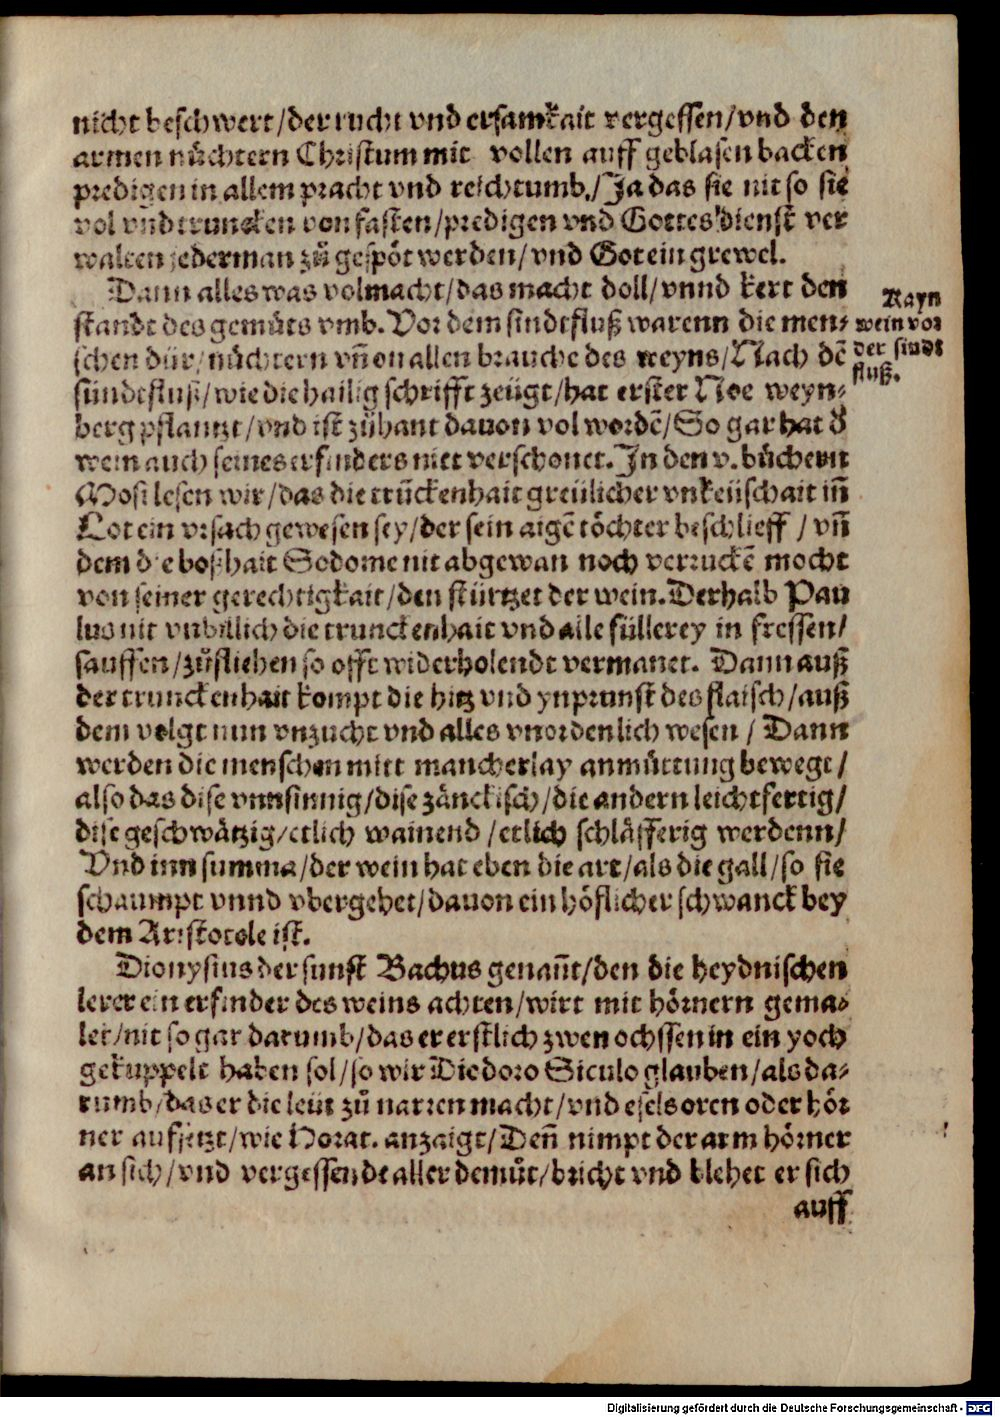 nicht beschwert/der zucht vnd ersamkait vergessen/vnd den
armen nüchtern Christum mit vollen auff geblasen backen
predigen in allem pracht vnd reichtumb/Ja das sie nit so sie
vol vnd truncken von fasten/predigen vnd Gottes dienst ver
walten jederman zů gespöt werden/vnd Got ein grewel.
Dann alles was volmacht/das macht doll/vnnd kert den
standt des gemůts vmb. Vor dem sindtfluß warenn die men-
schen dür/nüchtern vn̄ on allen brauche des weyns/Nach dē
sündtfluß/wie die hailig schrifft zeügt/hat erster Noe weyn-
berg pflantzt/vnd ist zůhant dauon vol wordē/So gar hat d
wein auch seines erfinders nitt verschonet. In den v. büchern
Mosi lesen wir/das die trūckenhait greülicher vnkeüschait in̄
Lot ein vrsach gewesen sey/der sein aigē töchter beschlieff/vn̄
dem die boßhait Sodome nit abgewan noch verruckē mocht
von seiner gerechtigkait/den stürtzet der wein. Derhalb Pau
lus nit vnbillich die trunckenhait vnd alle füllerey in fressen/
sauffen/zůfliehen so offt widerholendt vermanet. Dann auß
der trunckenhait kompt die hitz vnd ynprunst des flaisch/auß
dem volgt nun vnzucht vnd alles vnordenlich wesen/Dann
werden die menschen mitt mancherlay anmůttung bewegt/
also das dise vnnsinnig/dise zänckisch/die andern leichtfertig/
dise geschwätzig/etlich wainend/etlich schläfferig werdenn/
Vnd inn summa/der wein hat eben die art/als die gall/so sie
schaumpt vnnd vbergehet/dauon ein höflicher schwanck bey
dem Aristotele ist.
Dionysius der sunst Bachus genan̄t/den die heydnischen
lerer ein erfinder des weins achten/wirt mit hörnern gema-
let/nit so gar darumb/das er erstlich zwen ochssen in ein yoch
gekuppelt haben sol/so wir Diodoro Siculo glauben/als da-
rumb/das er die leüt zů narren macht/vnd esels oren oder hör
ner auffsetzt/wie Horat. anzaigt/Den̄ nimpt der arm hörner
an sich/vnd vergessende aller demůt/bricht vnd blehet er sich
auff
Kayn
wein vor
der sindt
fluß.
Digitalisierung gefördert durch die Deutsche Forschungsgemeinschaft - DFG